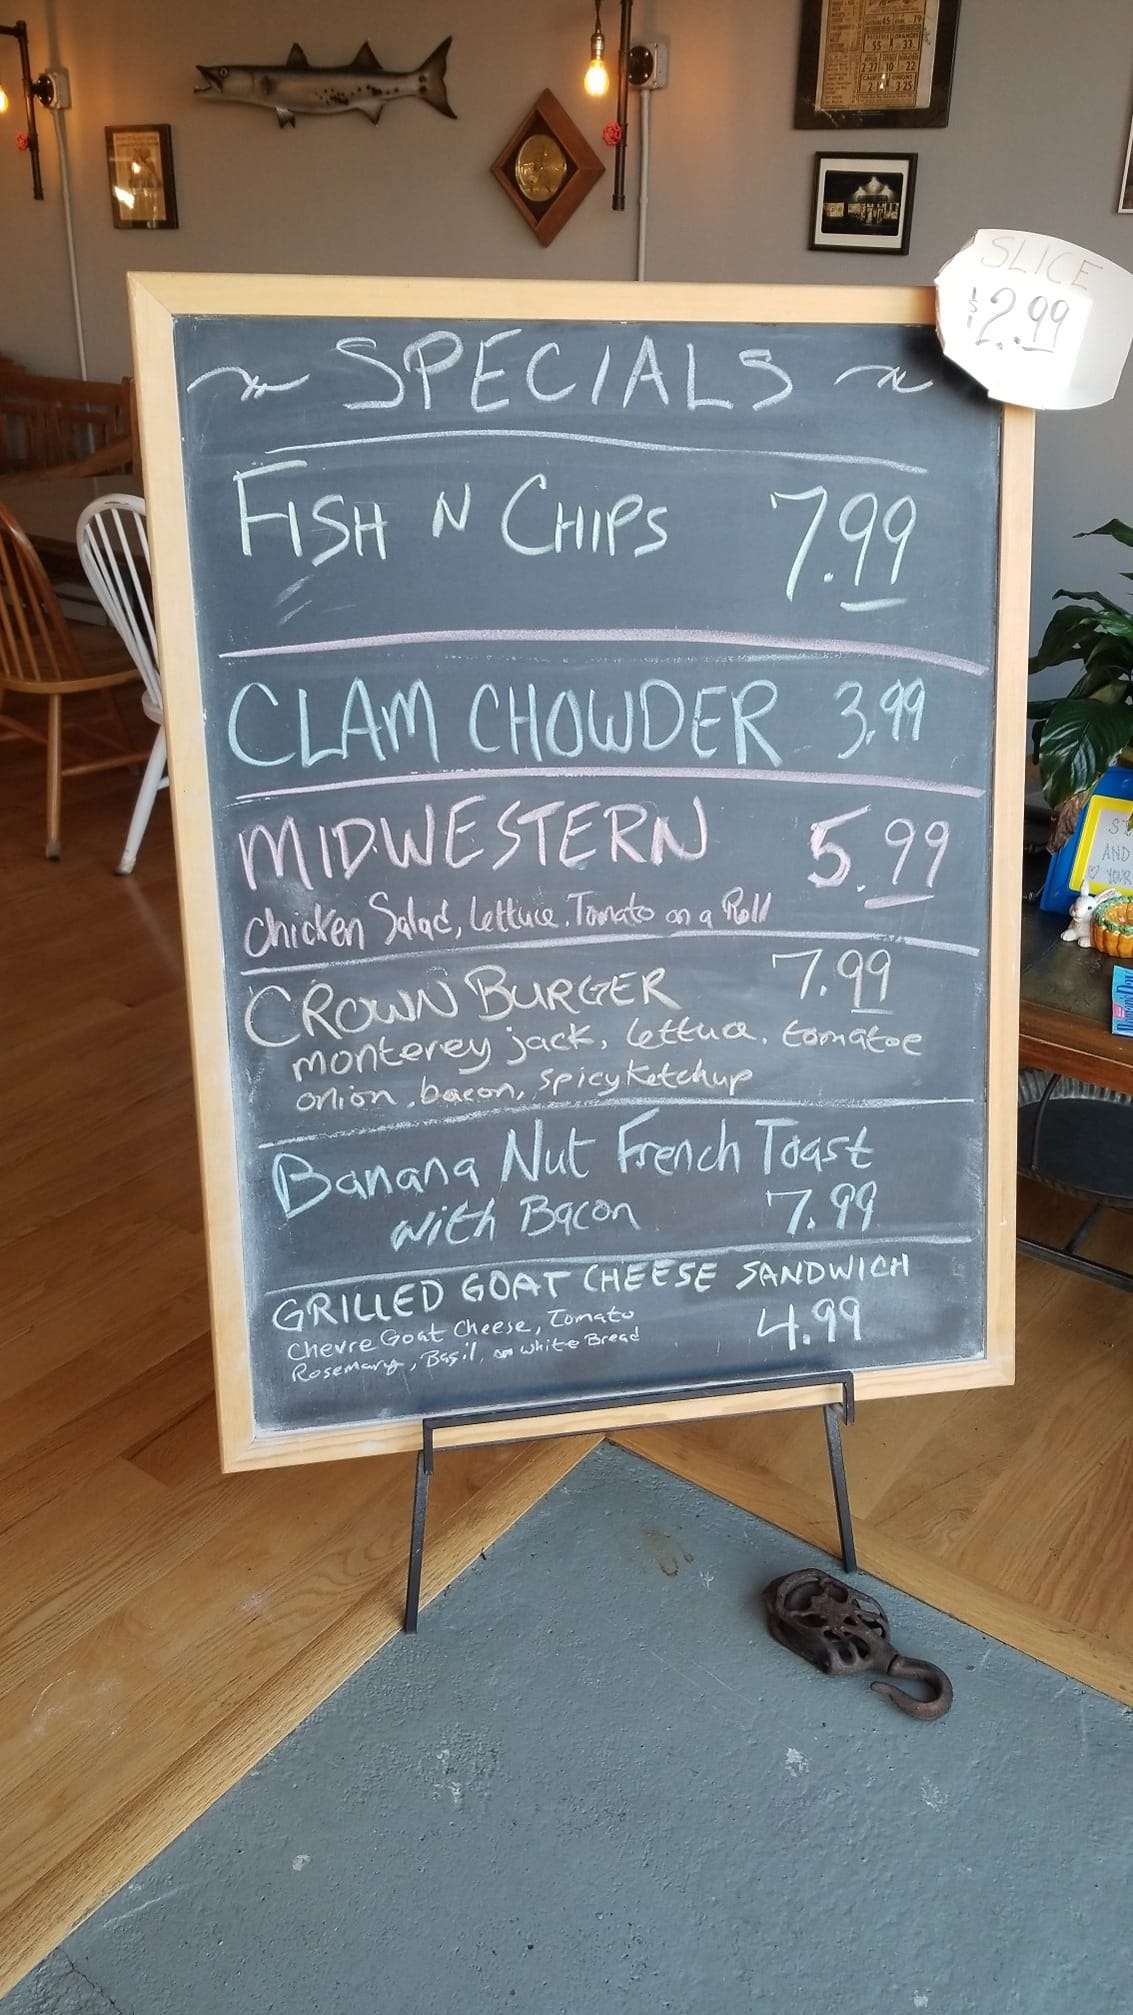 SLICE
$2.99
SPECIALS
FISH N CHIPS 7.99
CLAM CHOWDER 3.99
MIDWESTERN 5.99
chicken Salad, lettuce, Tomato on a Roll
CROWN BURGER 7.99
monterey jack, lettuce, tomatoe
onion, bacon, spicy ketchup
Banana Nut French Toast
with Bacon 7.99
GRILLED GOAT CHEESE SANDWICH
4.99
Chevre Goat Cheese, Tomato
Rosemary, Basil, on white Bread
AND
YOUR